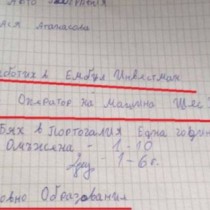 Ася Атанасова
работих в Ембул Инвестман
Оператор на машина Шпс
бях в Португалия Една годин
Омъжена - 1-10
- 1-6г.
овно Образовани